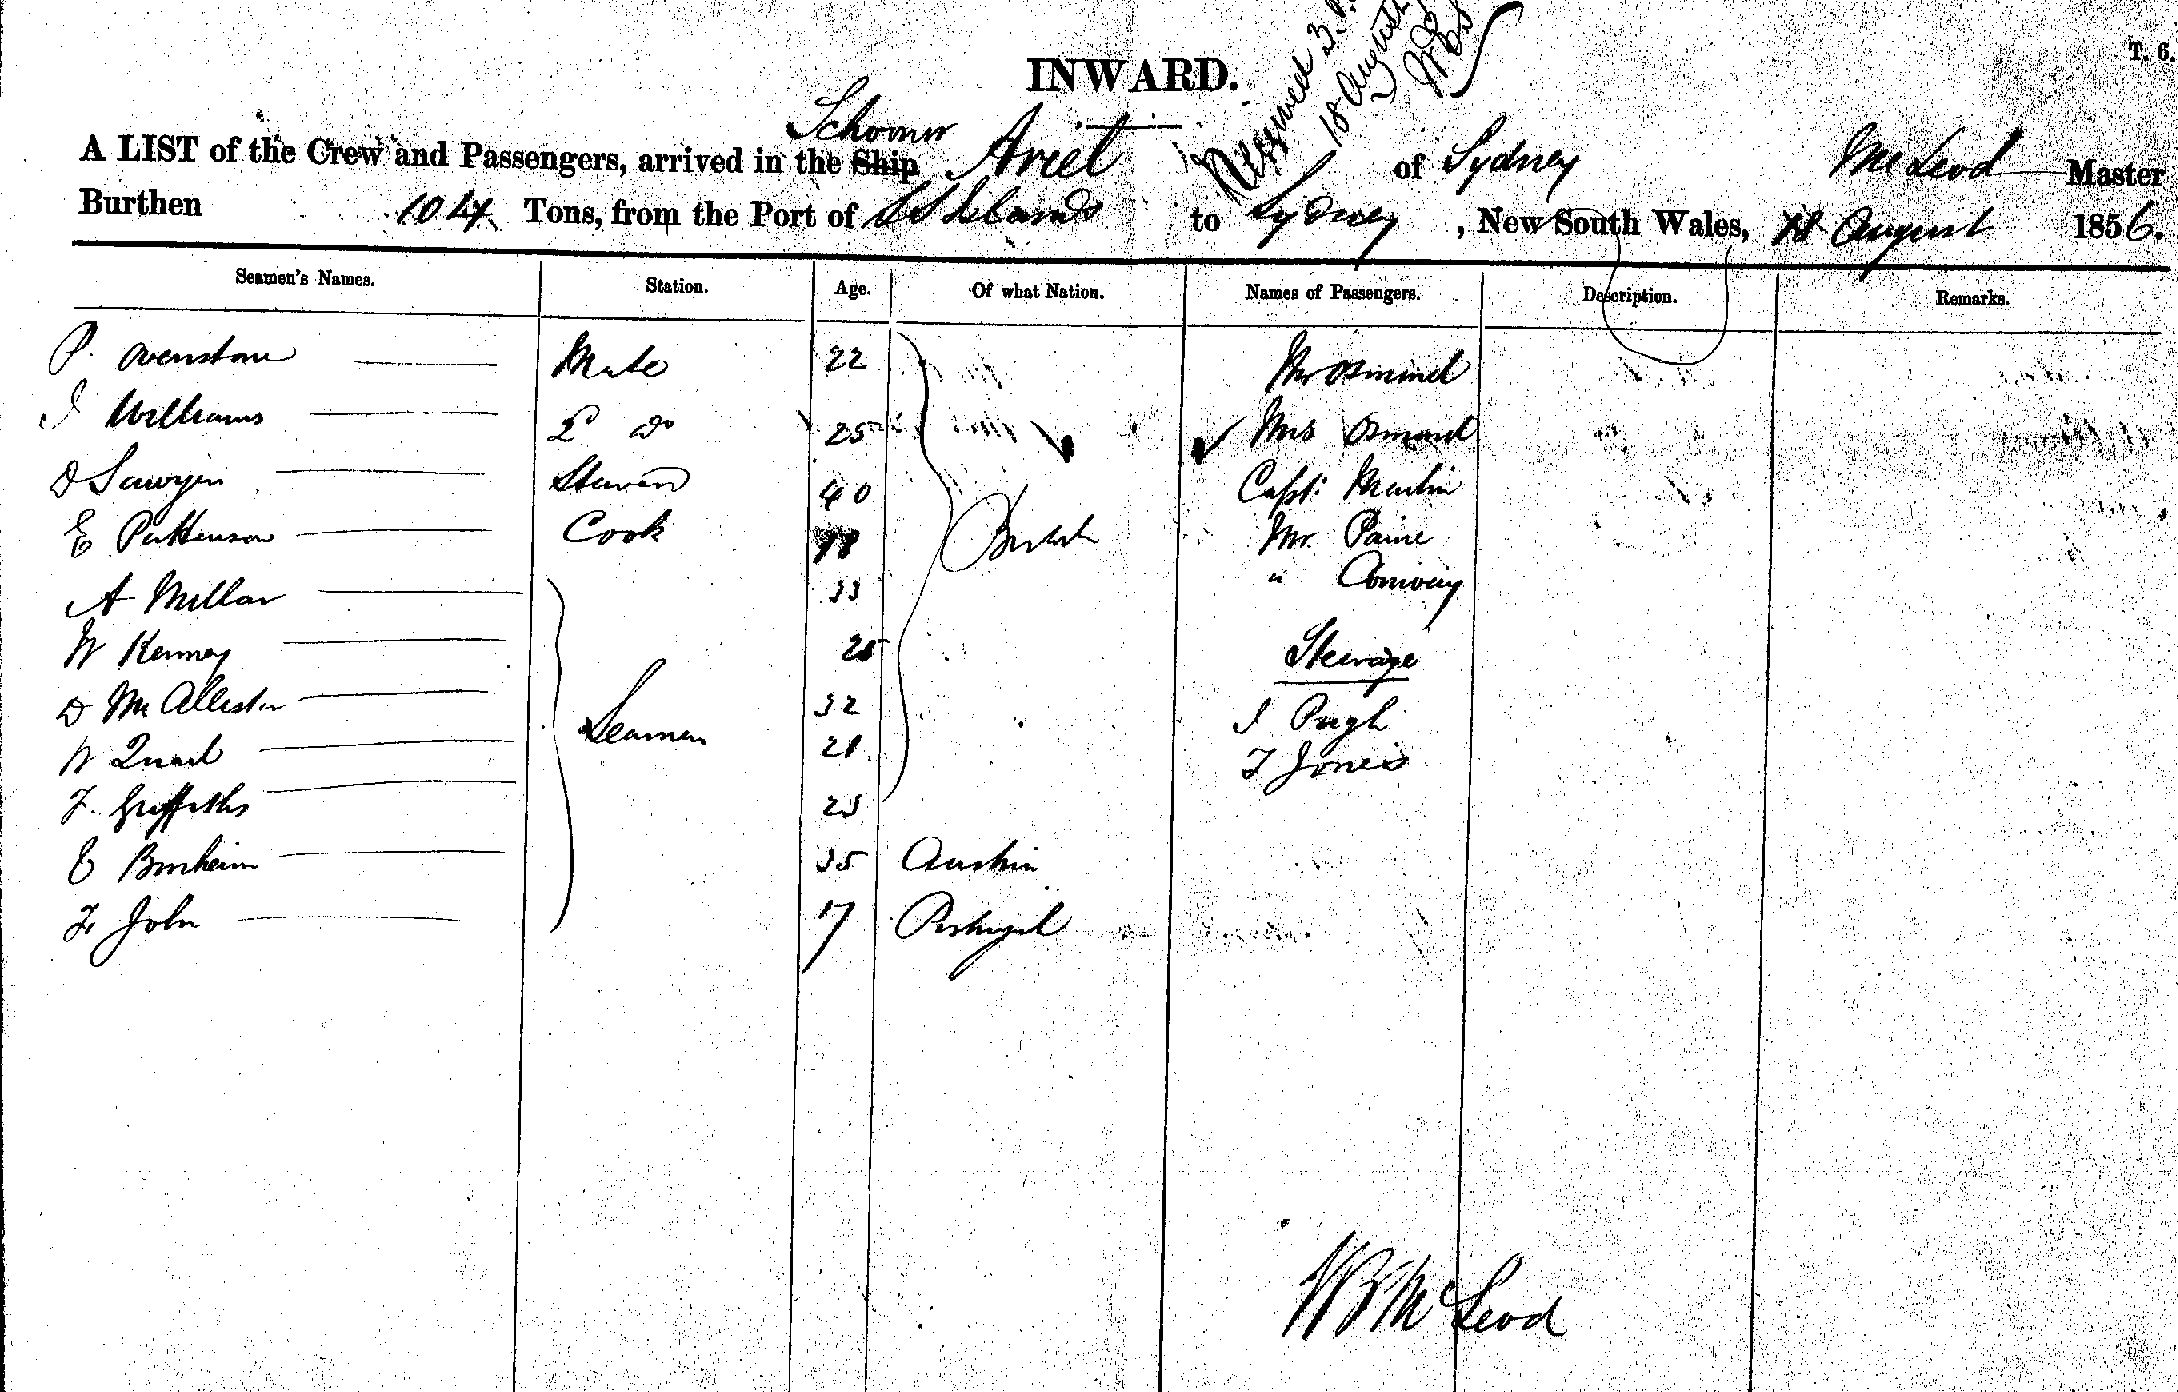 T. 6.
INWARD.
18 August
Schooner
A LIST of the Crew and Passengers, arrived in the Ship Ariel of Sydney McLeod Master
Burthen 104 Tons, from the Port of S S Islands to Sydney, New South Wales, August 1856.
Seamen's Names. Station. Age. Of what Nation. Names of Passengers. Description. Remarks.
P. Ovenstone Mate 22
J Williams 2 do 25 Mrs Osmond
D Sawyer Steward 40 Capt. Martin
E Pattenson Cook British Mr. Paine
A Millar 33 " Conway
W Kenney 25 Steerage
D McAllister Seamen 32 J Pugh
W Quail 21 T Jones
F. Griffiths 23
Bernheim 35 Austria
F. John 17 Portugal
W B McLeod